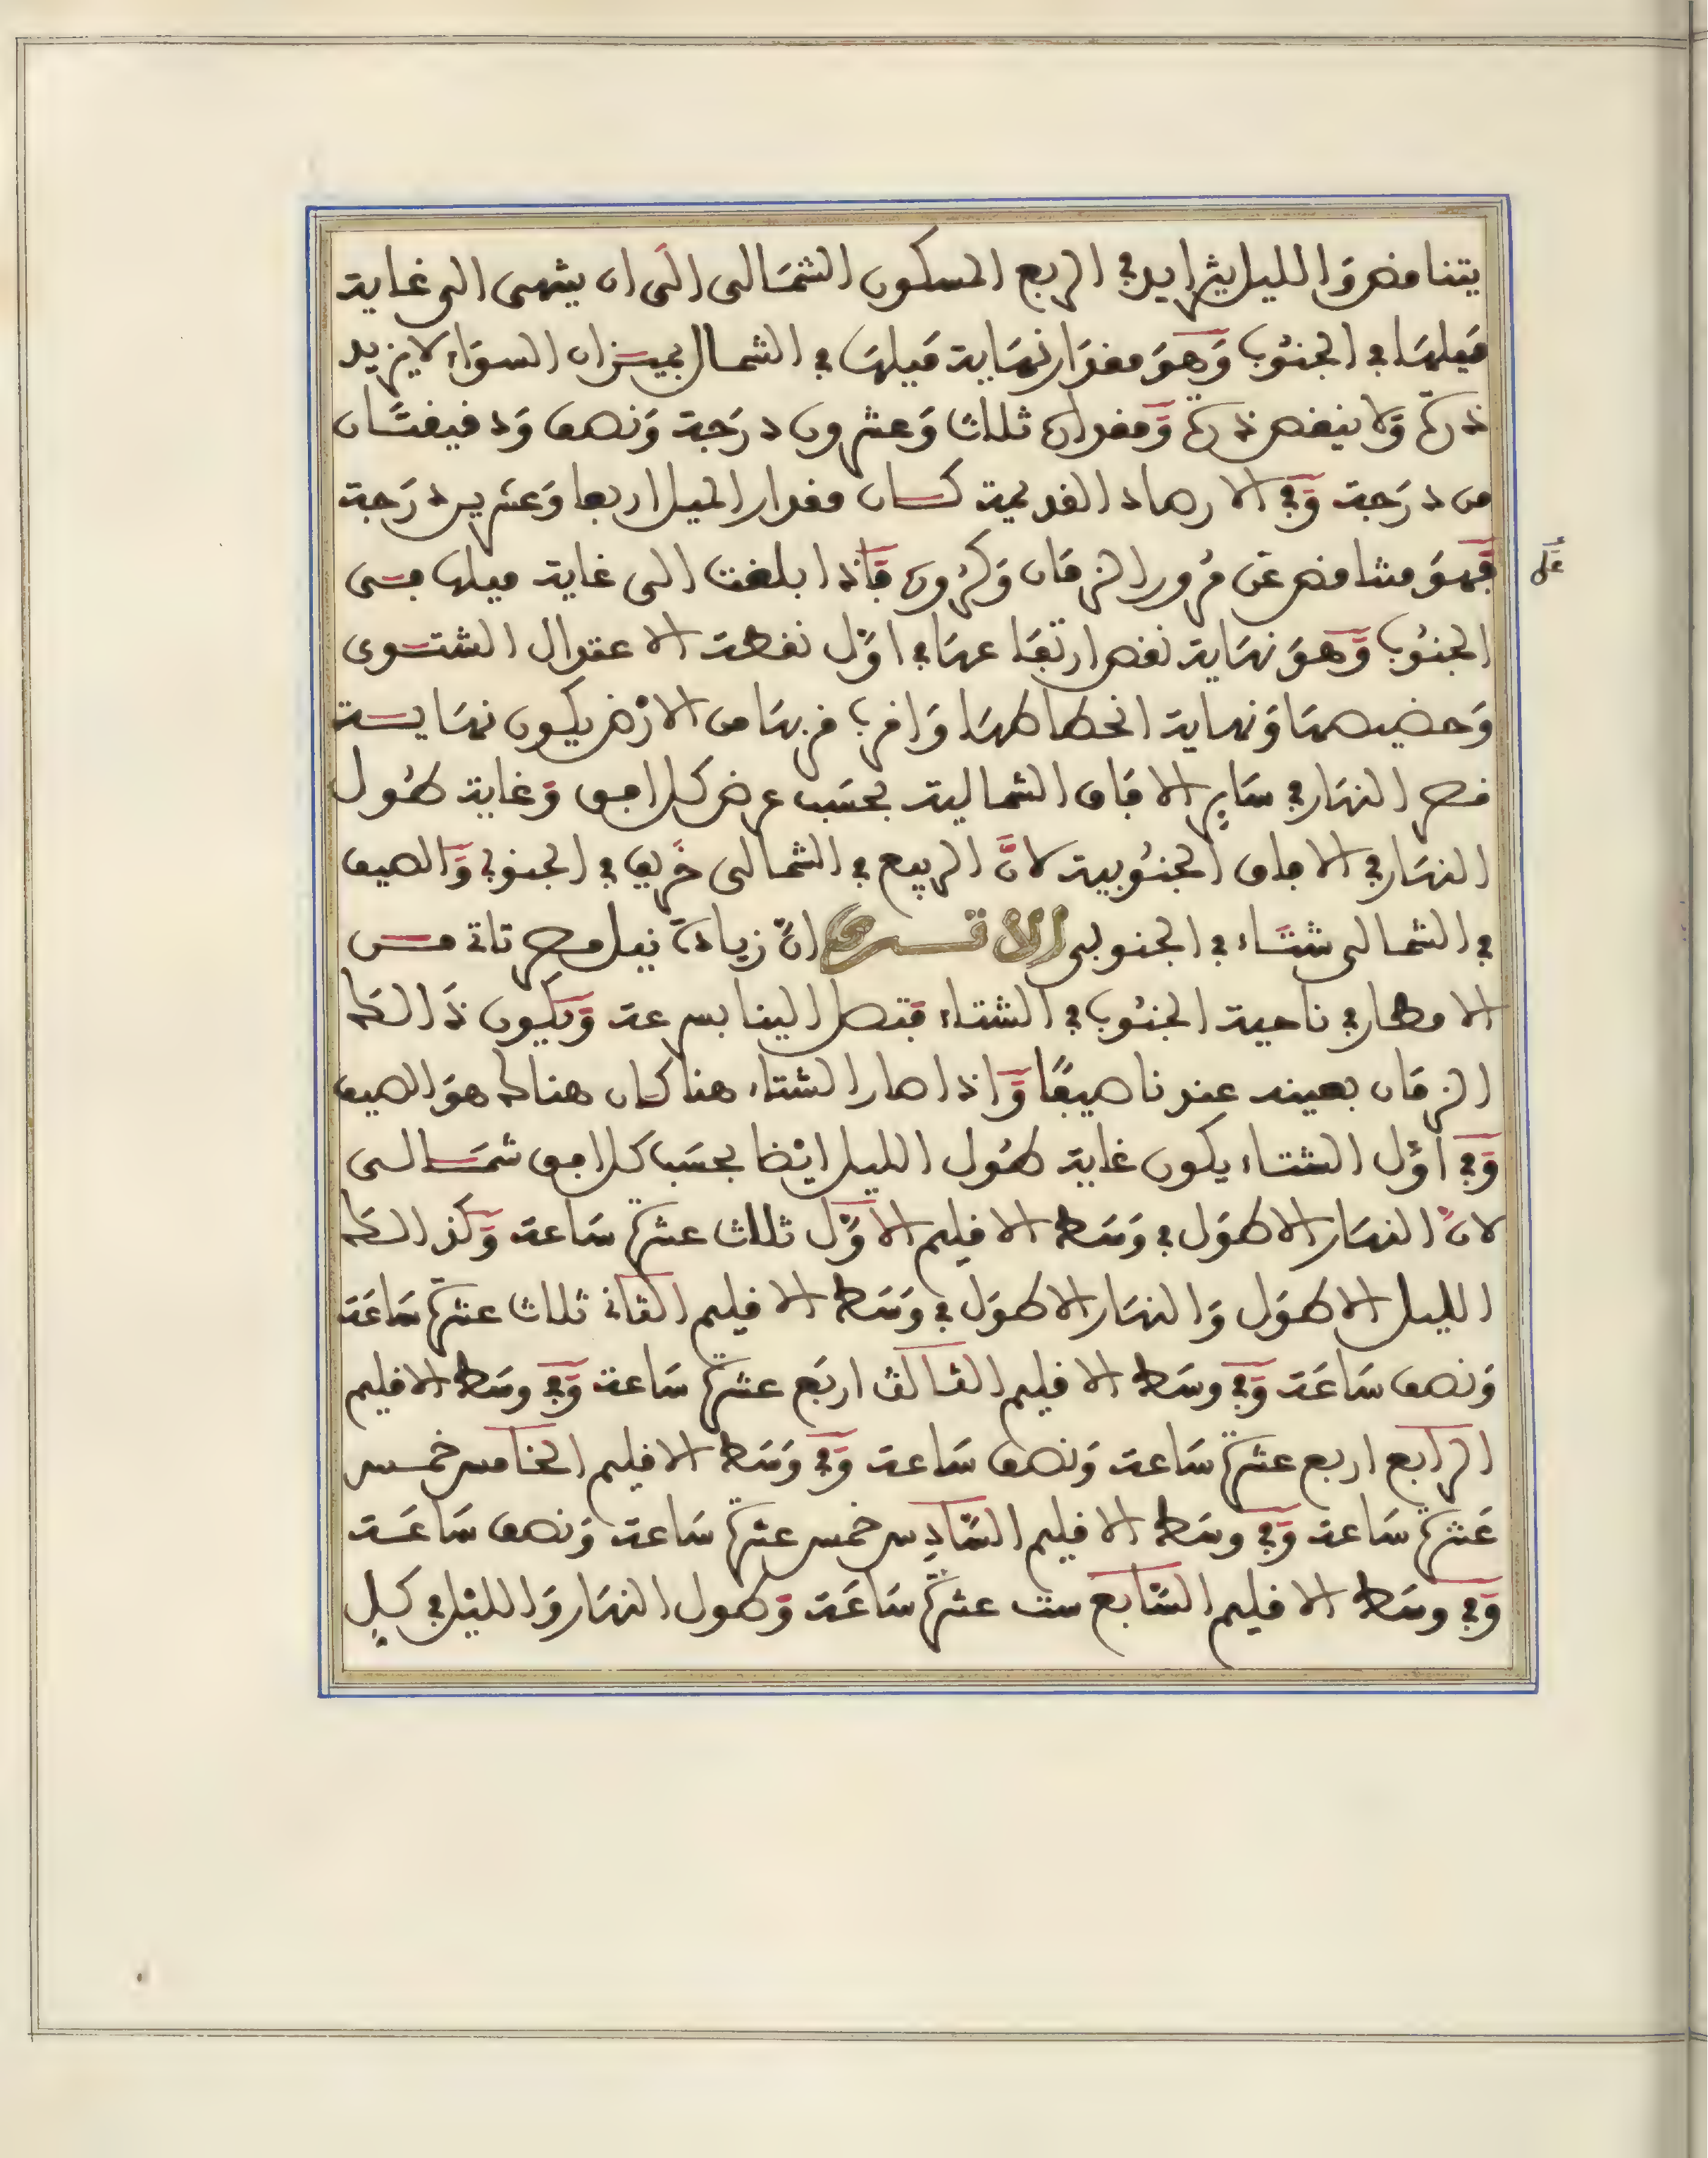 يتناقص وَالليل يتزايد في الربع المسكون الشمَالى الَى ان ينتهى الى غاية
مَيلهَا في الجنُوب وَهوَ مقدَار نهَاية مَيلهَا في الشمال بميزان السوَاء لا يزيد
ذرةً وَلا ينقص ذرةً وَمقداره ثلاث وَعشرون درَجة وَنصف وَدقيقتَان
من درَجة وَفي الارصاد القديمة كان مقدار الميل اربعا وَعشرين درَجة
فَهوَ متناقص عَن مُرور الزمَان وَكُرُوره فَاذا بلغت الى غاية ميلها فى
الجنُوب وَهوَ نهَاية نقص ارتفَاعهَا في اوّل نقطة الاعتدال الشتوى
وَحضيضهَا وَنهاية انحطاطهَا وَاقرب قربهَا من الارْض يكون نهَاية
قصر النهَار في سَاير الافَاق الشمالية بحسَب عرض كل افق وَغاية طُول
النهَار في الافاق الجنُوبية لانَّ الربيع في الشمالى خَريف في الجنوبي وَالصيف
في الشمالى شتَاء في الجنوبى الا ترى انّ زيادَة نيل مصر تاتي من
الامطار في ناحية الجنُوب في الشتاء فتصل الينا بسرعة وَيكون ذَالك
الزمَان بعينه عندنا صيفًا وَاذا صار الشتاء هنا كان هناك هوَ الصيف
وَفي اوّل الشتاء يكون غاية طُول الليل ايْضا بحسَب كل افق شمَالى
لانّ النهَار الاطوَل في وَسَط الاقليم الاوّل ثلاث عشرة سَاعة وَكذالك
الليل الاطوَل وَالنهَار الاطوَل في وَسَط الاقليم الثاني ثلاث عشرة سَاعَة
وَنصف سَاعَة وَفي وسَط الاقليم الثالث اربَع عشرة سَاعة وَفي وسَط الاقليم
الرابع اربع عشرة سَاعة وَنصف سَاعة وَفي وَسَط الاقليم الخامس خمس
عَشرة سَاعة وَفي وسَط الاقليم السّادِس خمس عشرة سَاعة وَنصف سَاعَة
وَفي وسَط الاقليم السّابع ست عشرة سَاعَة وَطول النهَار وَالليْل في كلِ
علَى